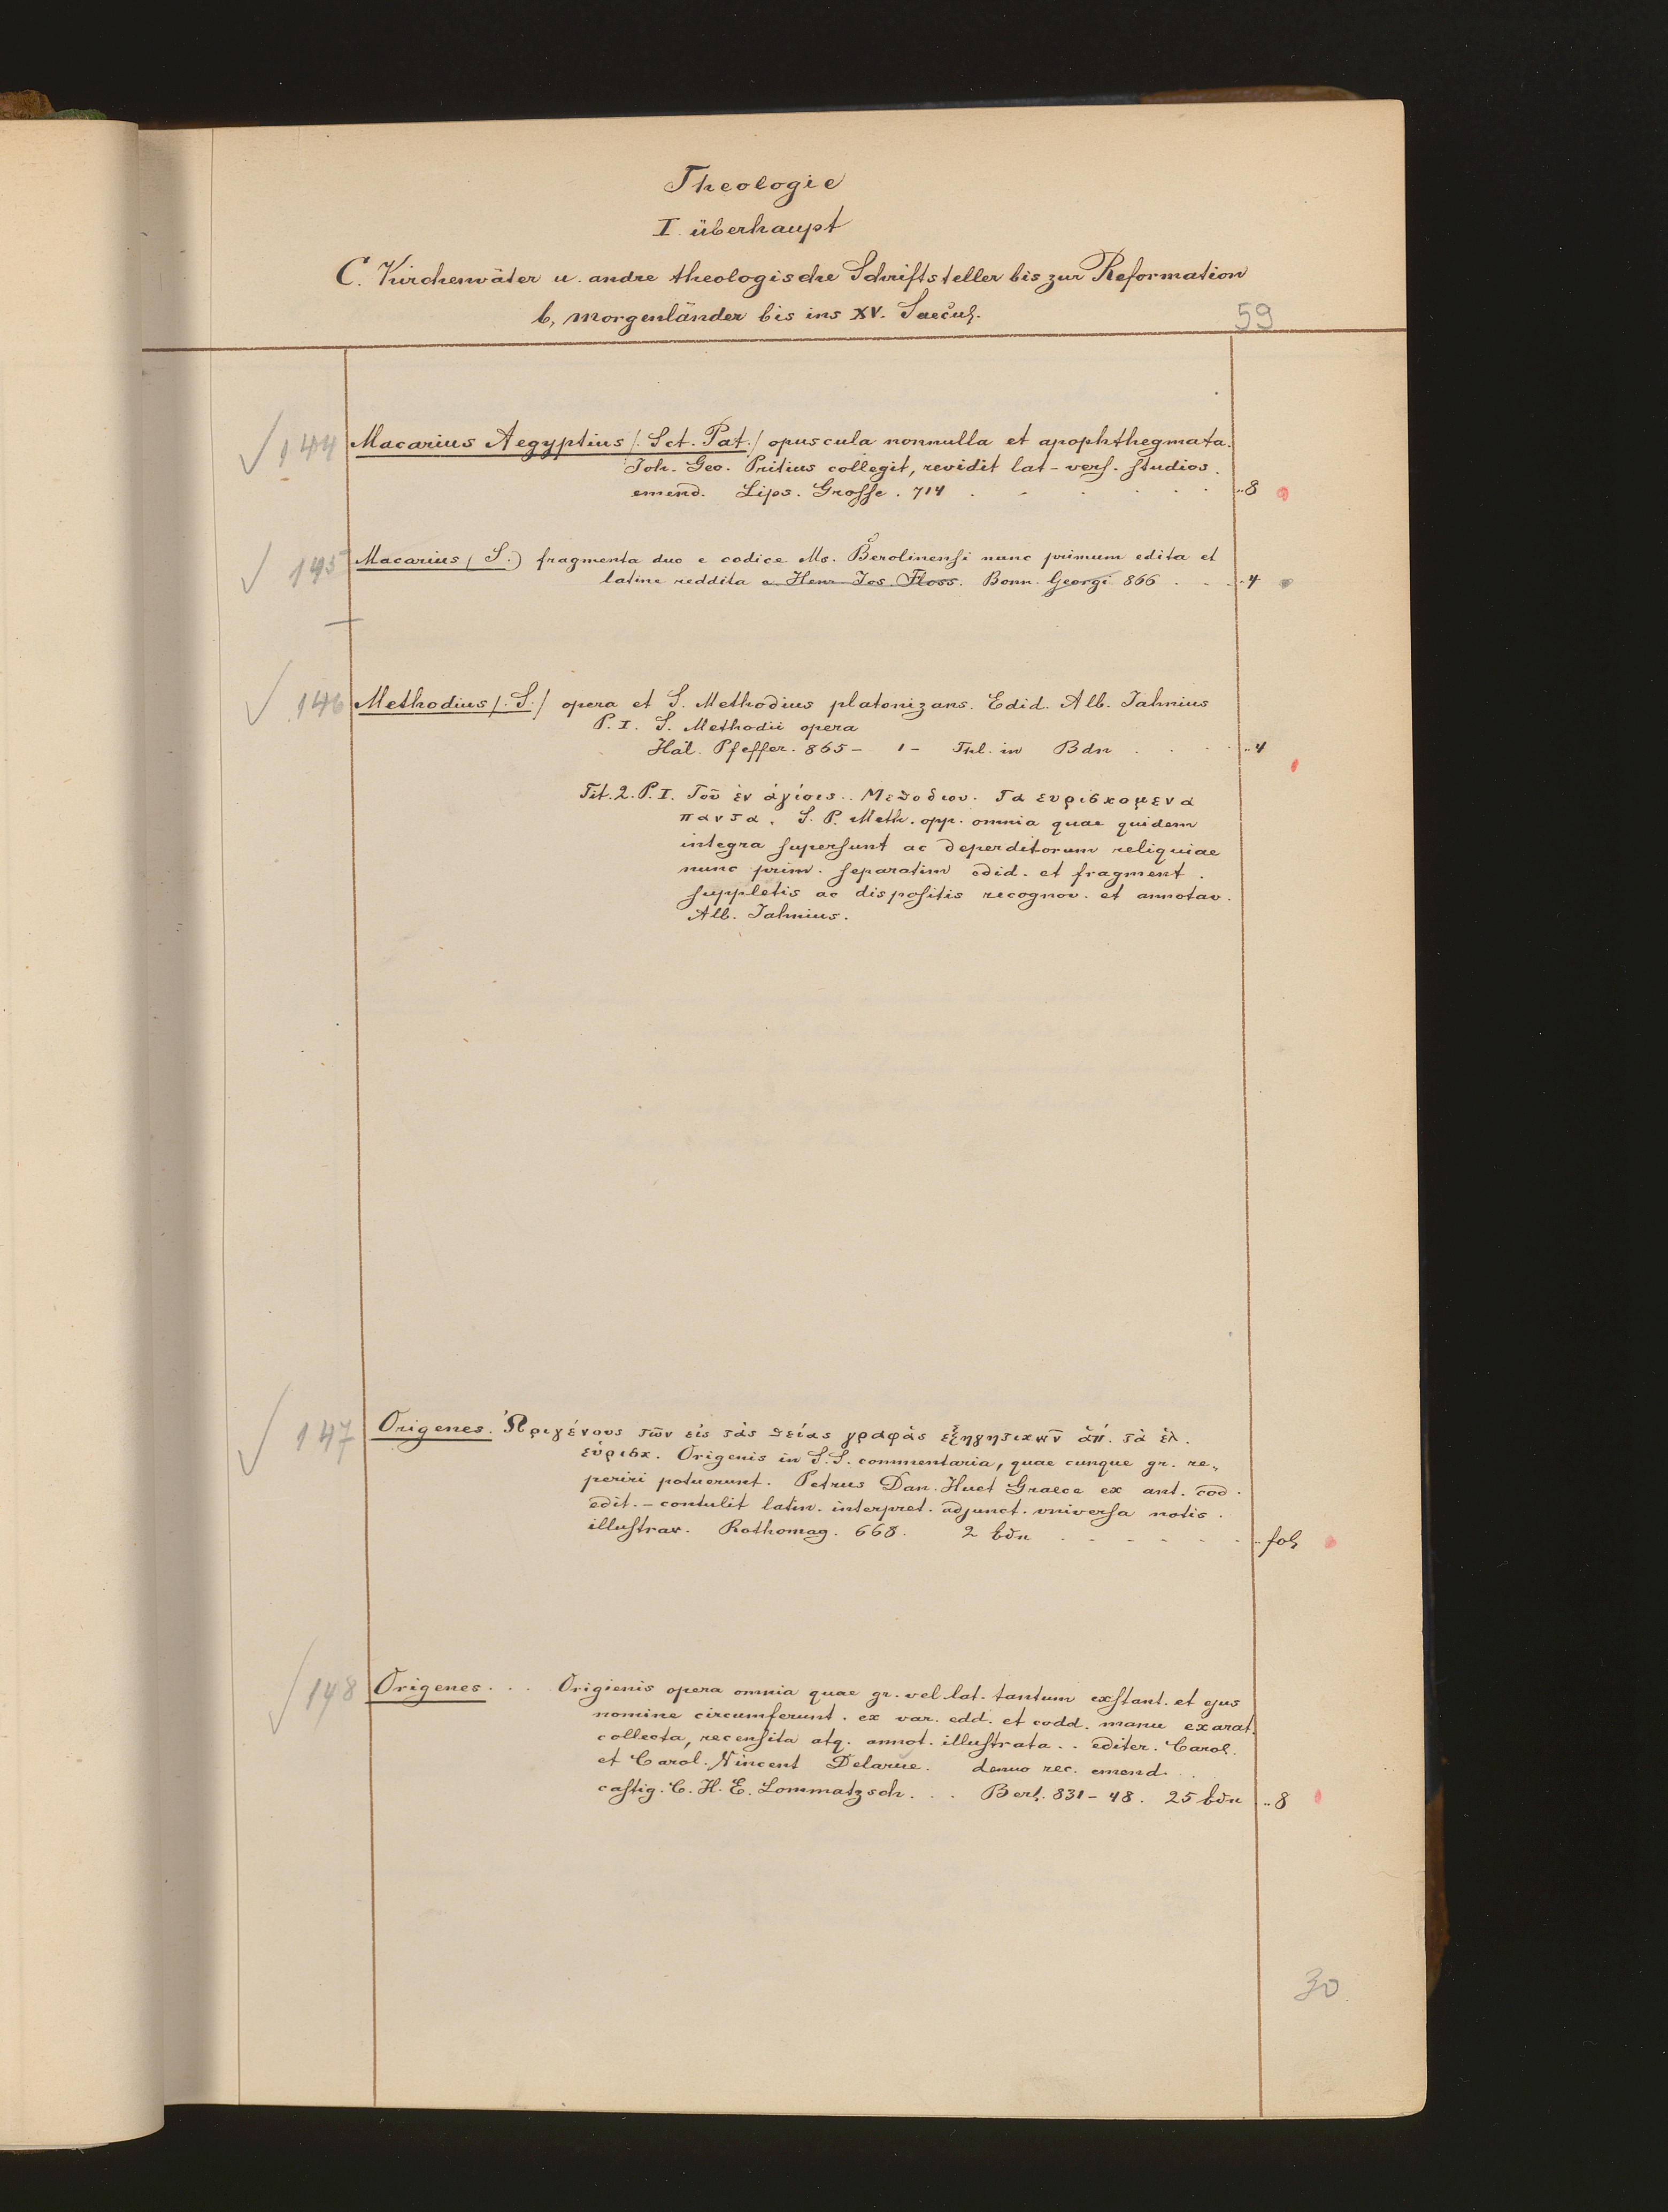 Theologie
I. überhaupt
C. Kirchenväter u. andre theologische Schriftsteller bis zur Reformation
b, Morgenländer bis ins XV. Saecul.
59
144 Macarius Aegyptius /. Sct. Pat./ opuscula nonnulla et apophthegmata.
Joh. Geo. Pritius collegit, revidit lat-vers. studios.
emend. Lips. Grosse. 714 . . . . . . ..8
145 Macarius (S.) fragmenta duo e codice Ms. Berolinensi nunc primum edita et
latine reddita e Henr Jos. Floss. Bonn. Georgi 866 . . . ..4
146 Methodius /. S./ opera et S. Methodius platonizans. Edid. Alb. Jahnius
P. I. S. Methodii opera
Hal. Pfeffer. 865 - 1 - Thl. in Bdn . . . ..4
Tit. 2. P. I. Τοῦ ἐν ἁγίοις.. Μεθοδιου. Τα ευρισκομενα
παντα. S. P. Meth. opp. omnia quae quidem
integra supersunt ac deperditorum reliquiae
nunc prim. separatim edid. et fragment.
suppletis ac dispositis recognov. et annotav.
Alb. Jahnius.
147 Origenes. Ὠριγένους τῶν εἰς τὰς θείας γραφὰς ἐξηγητικῶν ἁπ. τὰ ἑλ.
εὑρισκ. Origenis in S.S. commentaria, quae cunque gr. re„
periri potuerunt. Petrus Dan. Huet Graece ex ant. cod.
edit. - contulit latin. interpret. adjunct. vniversa notis.
illustrav. Rothomag. 668. 2 bdn . . . . . . .. fol
148 Origenes. . . Origienis opera omnia quae gr. vel lat. tantum exstant. et ejus
nomine circumferunt. ex var. edd. et codd. manu exarat.
collecta, recensita atq. annot. illustrata . . editer. Carol.
et Carol. Vincent Delarue. denuo rec. emend. . .
castig. C. H. E. Lommatzsch. . . Berl. 831-48. 25 bdn ..8
30